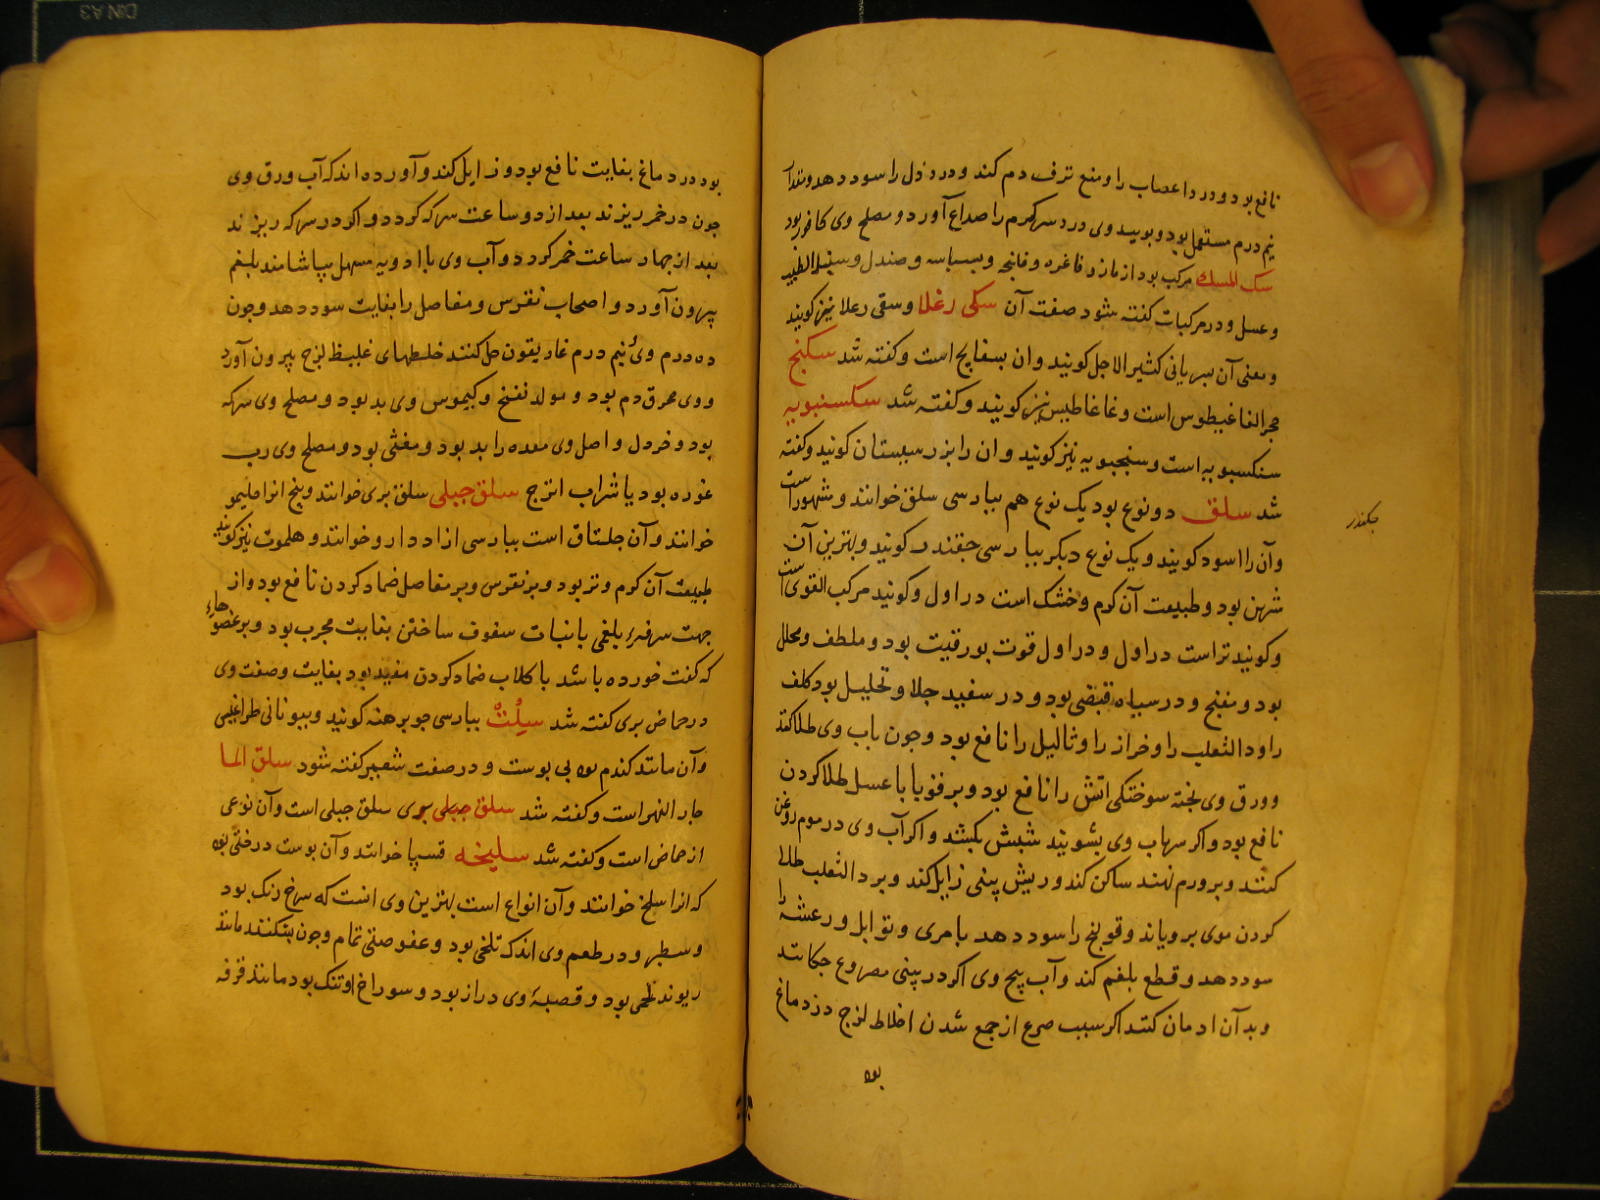 نافع بود و درد اعصاب را و منع نزف دم کند و درد دل را سود دهد و مقدار
نیم درم مستعمل بود و بوییدن وی درد سر گرم را صداع آورد و مصلح وی کافور بود
سک المسک مرکب بود از مازو و فاغره و قاقله و بسباسه و صندل و سنبل الطیب
و عسل و در مرکبات کفته شود صفت آن سکی رغلا و سقی رعلا نیز کویند
و معنی آن سریانی کثیر الارجل کویند و ان بسفایج است و کفته شد سکنج
حجر الغاغیطوس است و غاغاطیس نیز کویند و کفته شد سکسنبویه
سنکسبویه است و سنجبویه نیز کویند و ان را بزر سیستان کویند و کفته
شد سلق دو نوع بود یک نوع هم بپارسی سلق خوانند و مشهور است
جکندر
و آن را اسود کویند و یک نوع دیکر بپارسی جقندر کویند و بهترین آن
شیرین بود و طبیعت آن کرم و خشک است در اول و کویند مرکب القوی است
و کویند تر است در اول و در اول قوت بورقیت بود و ملطف و محلل
بود و مفتح و در سیاه قبضی بود و در سفید جلا و تحلیل بود کلف
را و داء الثعلب را و خراز را و ثالیل را نافع بود و جون باب وی طلا کنند
و ورق وی پخته سوختکی اتش را نافع بود و بر قوبا با عسل طلا کردن
نافع بود و اکر سر باب وی بشویند شبش بکشد و اکر آب وی در موم روغن
کنند و بر ورم نهند ساکن کند و ریش بینی زایل کند و بر داء الثعلب طلا
کردن موی برویاند و قولنج را سود دهد با مری و توابل و رعشه را
سود دهد و قطع بلغم کند و آب بیخ وی اکر در بینی مصروع جکانند
و بدآن ادمان کنند اکر سبب صرع از جمع شدن اخلاط لزج در دماغ
بود
بود در دماغ بغایت نافع بود و زایل کند و آورده اند که آب ورق وی
جون در خمر ریزند بعد از دو ساعت سرکه کردد و اکر در سرکه ریزند
بعد از جهار ساعت خمر کردد و آب وی با ادویه مسهل بیاشامند بلغم
بیرون آورد و اصحاب نقرس و مفاصل را بغایت سود دهد و جون
ده درم وی نیم درم غاریقون حل کنند خلطهای غلیظ لزج بیرون آورد
و وی محرق دم بود و مولد نفخ و کیموس وی بد بود و مصلح وی سرکه
بود و خردل و اصل وی معده را بد بود و مغثی بود و مصلح وی رب
غوره بود یا شراب اترج سلق جبلی سلق بری خوانند و بیخ انرا حلیمو
خوانند و آن جلتاق است بپارسی از اددارو خوانند و هلموت نیز کویند
طبیعت آن کرم و تر بود و بر نقرس و بر مفاصل ضماد کردن نافع بود و از
جهت سرفهٔ بلغمی با نبات سفوف ساختن بغایت مجرب بود و بر عضوهاء
که کفت خورده باشد با کلاب ضماد کردن مفید بود بغایت و صفت وی
در حماض بری کفته شد سلت بپارسی جو برهنه کویند و بیونانی طراغیس
و آن مانند کندم بود بی پوست و در صفت شعیر کفته شود سلق الما
جار النهر است و کفته شد سلق جبلی بری سلق جبلی است و آن نوعی
از حماض است و کفته شد سلیخه قسیا خوانند و آن پوست درختی بود
که انرا سلخ خوانند و آن انواع است بهترین وی انست که سرخ رنک بود
و سطبر و در طعم وی اندک تلخی بود و عفوصتی تمام و جون بشکنند مانند
ریوند لحمی بود و قصبهٔ وی دراز بود و سوراخ او تنک بود مانند قرفه